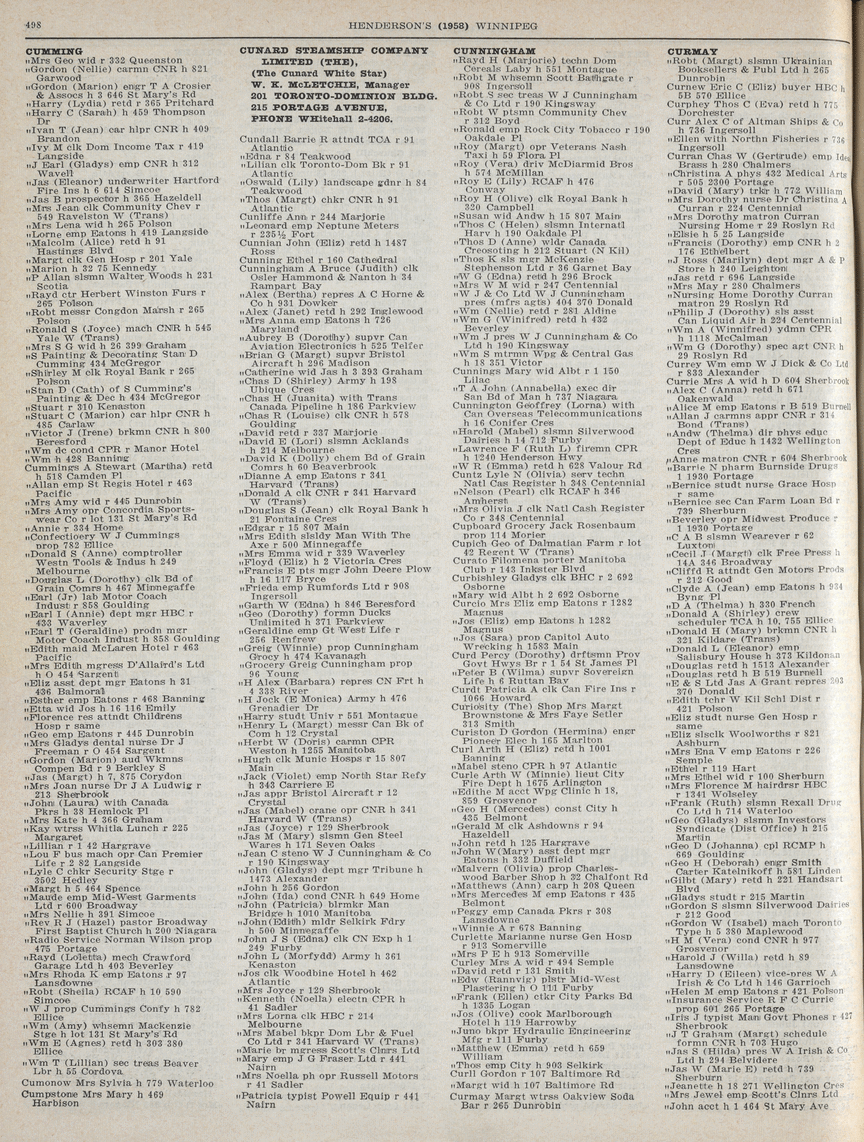 498
HENDERSON'S (1958) WINNIPEG
CUMMING
"Mrs Geo wid r 332 Queenston
"Gordon (Nellie) carmn CNR h 821
Garwood
"Gordon (Marion) engr T A Crosier
& Assocs h 3 646 St Mary's Rd
"Harry (Lydia) retd r 365 Pritchard
"Harry C (Sarah) h 459 Thompson
Dr
"Ivan T (Jean) car hlpr CNR h 409
Brandon
"Ivy M clk Dom Income Tax r 419
Langside
"J Earl (Gladys) emp CNR h 312
Wavell
"Jas (Eleanor) underwriter Hartford
Fire Ins h 6 614 Simcoe
"Jas B prospector h 365 Hazeldell
"Mrs Jean clk Community Chev r
549 Ravelston W (Trans)
"Mrs Lena wid h 265 Polson
"Lorne emp Eatons h 419 Langside
"Malcolm (Alice) retd h 91
Hastings Blvd
"Margt clk Gen Hosp r 201 Yale
"Marion h 32 75 Kennedy
"P Allan slsmn Walter Woods h 231
Scotia
"Rayd ctr Herbert Winston Furs r
265 Polson
"Robt messr Congdon Marsh r 265
Polson
"Ronald S (Joyce) mach CNR h 545
Yale W (Trans)
"Mrs S G wid h 26 399 Graham
"S Painting & Decorating Stan D
Cumming 434 McGregor
"Shirley M clk Royal Bank r 265
Polson
"Stan D (Cath) of S Cumming's
Painting & Dec h 434 McGregor
"Stuart r 310 Kenaston
"Stuart C (Marion) car hlpr CNR h
485 Carlaw
"Victor J (Irene) brkmn CNR h 800
Beresford
"Wm de cond CPR r Manor Hotel
"Wm h 428 Banning
Cummings A Stewart (Martha) retd
h 518 Camden Pl
"Allan emp St Regis Hotel r 463
Pacific
"Mrs Amy wid r 445 Dunrobin
"Mrs Amy opr Concordia Sports-
wear Co r lot 131 St Mary's Rd
"Annie r 334 Home
"Confectioery W J Cummings
prop 782 Ellice
"Donald S (Anne) comptroller
Westn Tools & Indus h 249
Melbourne
"Douglas L (Dorothy) clk Bd of
Grain Comrs h 467 Minnegaffe
"Earl (Jr) lab Motor Coach
Indust r 858 Goulding
"Earl I (Annie) dept mgr HBC r
433 Waverley
"Earl T (Geraldine) prodn mgr
Motor Coach Indust h 858 Goulding
"Edith maid McLaren Hotel r 463
Pacific
"Mrs Edith mgress D'Allaird's Ltd
h O 454 Sargent
"Eliz asst dept mgr Eatons h 31
436 Balmoral
"Esther emp Eatons r 468 Banning
"Etta wid Jos h 16 116 Emily
"Florence res attndt Childrens
Hosp r same
"Geo emp Eatons r 445 Dunrobin
"Mrs Gladys dental nurse Dr J
Freeman r O 454 Sargent
"Gordon (Marion) aud Wkmns
Compen Bd r 9 Berkley S
"Jas (Margt) h 7, 875 Corydon
"Mrs Joan nurse Dr J A Ludwig r
213 Sherbrook
"John (Laura) with Canada
Pkrs h 38 Hemlock Pl
"Mrs Kate h 4 366 Graham
"Kay wtrss Whitla Lunch r 225
Margaret
"Lillian r 1 42 Hargrave
"Lou F bus mach opr Can Premier
Life r 2 82 Langside
"Lyle C chkr Security Stge r
3502 Hedley
"Margt h 5 464 Spence
"Maude emp Mid-West Garments
Ltd r 600 Broadway
"Mrs Nellie h 391 Simcoe
"Rev R J (Hazel) pastor Broadway
First Baptist Church h 200 Niagara
"Radio Service Norman Wilson prop
475 Portage
"Rayd (Loletta) mech Crawford
Garage Ltd h 403 Beverley
"Mrs Rhoda K emp Eatons r 97
Lansdowne
"Robt (Sheila) RCAF h 10 590
Simcoe
"W J prop Cummings Confy h 782
Ellice
"Wm (Amy) whsemn Mackenzie
Stge h lot 131 St Mary's Rd
"Wm E (Agnes) retd h 303 380
Ellice
"Wm T (Lillian) sec treas Beaver
Lbr h 55 Cordova
Cumonow Mrs Sylvia h 779 Waterloo
Cumpstone Mrs Mary h 469
Harbison
CUNARD STEAMSHIP COMPANY
LIMITED (THE),
(The Cunard White Star)
W. K. McLETCHIE, Manager
201 TORONTO-DOMINION BLDG.
215 PORTAGE AVENUE,
PHONE WHitehall 2-4206.
Cundall Barrie R attndt TCA r 91
Atlantic
"Edna r 84 Teakwood
"Lilian clk Toronto-Dom Bk r 91
Atlantic
"Oswald (Lily) landscape gdnr h 84
Teakwood
"Thos (Margt) chkr CNR h 91
Atlantic
Cunliffe Ann r 244 Marjorie
"Leonard emp Neptune Meters
r 235½ Fort
Cunnian John (Eliz) retd h 1487
Ross
Cunning Ethel r 160 Cathedral
Cunningham A Bruce (Judith) clk
Osler Hammond & Nanton h 34
Rampart Bay
"Alex (Bertha) repres A C Horne &
Co h 931 Dowker
"Alex (Janet) retd h 292 Inglewood
"Mrs Anna emp Eatons h 726
Maryland
"Aubrey B (Dorothy) supvr Can
Aviation Electronics h 525 Telfer
"Brian G (Margt) supvr Bristol
Aircraft h 296 Madison
"Catherine wid Jas h 3 393 Graham
"Chas D (Shirley) Army h 198
Ubique Cres
"Chas H (Juanita) with Trans
Canada Pipeline h 186 Parkview
"Chas R (Louise) clk CNR h 578
Goulding
"David retd r 337 Marjorie
"David E (Lori) slsmn Acklands
h 214 Melbourne
"David K (Dolly) chem Bd of Grain
Comrs h 60 Beaverbrook
"Dianne A emp Eatons r 341
Harvard (Trans)
"Donald A clk CNR r 341 Harvard
W (Trans)
"Douglas S (Jean) clk Royal Bank h
21 Fontaine Cres
"Edgar r 15 807 Main
"Mrs Edith slsldy Man With The
Axe r 500 Minnegaffe
"Mrs Emma wid r 339 Waverley
"Floyd (Eliz) h 2 Victoria Cres
"Francis E pts mgr John Deere Plow
h 16 117 Bryce
"Frieda emp Rumfords Ltd r 908
Ingersoll
"Garth W (Edna) h 846 Beresford
"Geo (Dorothy) formn Ducks
Unlimited h 371 Parkview
"Geraldine emp Gt West Life r
256 Renfrew
"Greig (Winnie) prop Cunningham
Grocy h 474 Kavanagh
"Grocery Greig Cunningham prop
96 Young
"H Alex (Barbara) repres CN Frt h
4 338 River
"H Jock (E Monica) Army h 476
Grenadier Dr
"Harry studt Univ r 551 Montague
"Henry L (Margt) messr Can Bk of
Com h 12 Crystal
"Herbt W (Doris) carmn CPR
Weston h 1255 Manitoba
"Hugh clk Munic Hosps r 15 807
Main
"Jack (Violet) emp North Star Refy
h 343 Carriere E
"Jas appr Bristol Aircraft r 12
Crystal
"Jas (Mabel) crane opr CNR h 341
Harvard W (Trans)
"Jas (Joyce) r 129 Sherbrook
"Jas M (Mary) slsmn Gen Steel
Wares h 171 Seven Oaks
"Jean C steno W J Cunningham & Co
r 190 Kingsway
"John (Gladys) dept mgr Tribune h
1473 Alexander
"John h 256 Gordon
"John (Ida) cond CNR h 649 Home
"John (Patricia) blrmkr Man
Bridge h 1010 Manitoba
"John (Edith) mldr Selkirk Fdry
h 500 Minnegaffe
"John J S (Edna) clk CN Exp h 1
249 Furby
"John L (Morfydd) Army h 361
Kenaston
"Jos clk Woodbine Hotel h 462
Atlantic
"Mrs Joyce r 129 Sherbrook
"Kenneth (Noella) electn CPR h
41 Sadler
"Mrs Lorna clk HBC r 214
Melbourne
"Mrs Mabel bkpr Dom Lbr & Fuel
Co Ltd r 341 Harvard W (Trans)
"Marie br mgress Scott's Clnrs Ltd
"Mary emp J G Fraser Ltd r 441
Nairn
"Mrs Noella ph opr Russell Motors
r 41 Sadler
"Patricia typist Powell Equip r 441
Nairn
CUNNINGHAM
"Rayd H (Marjorie) techn Dom
Cereals Laby h 551 Montague
"Robt M whsemn Scott Bathgate r
908 Ingersoll
"Robt S sec treas W J Cunningham
& Co Ltd r 190 Kingsway
"Robt W ptsmn Community Chev
r 312 Boyd
"Ronald emp Rock City Tobacco r 190
Oakdale Pl
"Roy (Margt) opr Veterans Nash
Taxi h 59 Flora Pl
"Roy (Vera) driv McDiarmid Bros
h 574 McMillan
"Roy E (Lily) RCAF h 476
Conway
"Roy H (Olive) clk Royal Bank h
320 Campbell
"Susan wid Andw h 15 807 Main
"Thos C (Helen) slsmn Internatl
Harv h 190 Oakdale Pl
"Thos D (Anne) wldr Canada
Creosoting h 212 Stuart (N Kil)
"Thos K sls mgr McKenzie
Stephenson Ltd r 36 Garnet Bay
"W G (Edna) retd h 296 Brock
"Mrs W M wid r 247 Centennial
"W J & Co Ltd W J Cunningham
pres (mfrs agts) 404 370 Donald
"Wm (Nellie) retd r 281 Aldine
"Wm G (Winifred) retd h 432
Beverley
"Wm J pres W J Cunningham & Co
Ltd h 190 Kingsway
"Wm S mtrmn Wpg & Central Gas
h 18 351 Victor
Cunnings Mary wid Albt r 1 150
Lilac
"T A John (Annabella) exec dir
San Bd of Man h 737 Niagara
Cunnington Geoffrey (Lorna) with
Can Overseas Telecommunications
h 16 Conifer Cres
"Harold (Mabel) slsmn Silverwood
Dairies h 14 712 Furby
"Lawrence F (Ruth L) firemn CPR
h 1240 Henderson Hwy
"W R (Emma) retd h 628 Valour Rd
Cuntz Lyle N (Olivia) serv techn
Natl Cas Register h 348 Centennial
"Nelson (Pearl) clk RCAF h 346
Amherst
"Mrs Olivia J clk Natl Cash Register
Co r 348 Centennial
Cupboard Grocery Jack Rosenbaum
prop 114 Morier
Cupich Geo of Dalmatian Farm r lot
42 Regent W (Trans)
Curato Filomena porter Manitoba
Club r 143 Inkster Blvd
Curbishley Gladys clk BHC r 2 692
Osborne
"Mary wid Albt h 2 692 Osborne
Curcio Mrs Eliz emp Eatons r 1282
Magnus
"Jos (Eliz) emp Eatons h 1282
Magnus
"Jos (Sara) prop Capitol Auto
Wrecking h 1583 Main
Curd Percy (Dorothy) drftsmn Prov
Govt Hwys Br r 1 54 St James Pl
"Peter B (Wilma) supvr Sovereign
Life h 6 Ruttan Bay
Curdt Patricia A clk Can Fire Ins r
1066 Howard
Curiosity (The) Shop Mrs Margt
Brownstone & Mrs Faye Setler
313 Smith
Curiston D Gordon (Hermina) engr
Pioneer Elec h 165 Marlton
Curl Arth H (Eliz) retd h 1001
Banning
"Mabel steno CPR h 97 Atlantic
Curle Arth W (Minnie) lieut City
Fire Dept h 1675 Arlington
"Edithe M acct Wpg Clinic h 18,
859 Grosvenor
"Geo H (Mercedes) const City h
435 Belmont
"Gerald M clk Ashdowns r 94
Hazeldell
"John retd h 125 Hargrave
"John W(Mary) asst dept mgr
Eatons h 332 Duffield
"Malvern (Olivia) prop Charles-
wood Barber Shop h 32 Chalfont Rd
"Matthews (Ann) carp h 208 Queen
"Mrs Mercedes M emp Eatons r 435
Belmont
"Peggy emp Canada Pkrs r 308
Lansdowne
"Winnie A r 678 Banning
Curlette Marianne nurse Gen Hosp
r 913 Somerville
"Mrs P E h 913 Somerville
Curley Mrs A wid r 494 Semple
"David retd r 131 Smith
"Edw (Rannvig) plstr Mid-West
Plastering h O 111 Furby
"Frank (Ellen) ctkr City Parks Bd
h 1335 Logan
"Jos (Olive) cook Marlborough
Hotel h 119 Harrowby
"Juno bkpr Hydraulic Engineering
Mfg r 111 Furby
"Matthew (Emma) retd h 659
William
"Thos emp City h 903 Selkirk
Curll Gordon r 107 Baltimore Rd
"Margt wid h 107 Baltimore Rd
Curmay Margt wtrss Oakview Soda
Bar r 265 Dunrobin
CURMAY
"Robt (Margt) slsmn Ukrainian
Booksellers & Publ Ltd h 265
Dunrobin
Curnew Eric C (Eliz) buyer HBC h
5B 570 Ellice
Curphey Thos C (Eva) retd h 775
Dorchester
Curr Alex C of Altman Ships & Co
h 736 Ingersoll
"Ellen with Northn Fisheries r 736
Ingersoll
Curran Chas W (Gertrude) emp Ideal
Brass h 280 Chalmers
"Christina A phys 432 Medical Arts
r 505 2300 Portage
"David (Mary) trkr h 772 William
"Mrs Dorothy nurse Dr Christina A
Curran r 224 Centennial
"Mrs Dorothy matron Curran
Nursing Home r 29 Roslyn Rd
"Elsie h 5 25 Langside
"Francis (Dorothy) emp CNR h 2
176 Ethelbert
"J Ross (Marilyn) dept mgr A & P
Store h 240 Leighton
"Jas retd r 696 Langside
"Mrs May r 280 Chalmers
"Nursing Home Dorothy Curran
matron 29 Roslyn Rd
"Philip J (Dorothy) sls asst
Can Liquid Air h 224 Centennial
"Wm A (Winnifred) ydmn CPR
h 1118 McCalman
"Wm G (Dorothy) spec agt CNR h
29 Roslyn Rd
Currey Wm emp W J Dick & Co Ltd
r 833 Alexander
Currie Mrs A wid h D 604 Sherbrook
"Alex C (Anna) retd h 671
Oakenwald
"Alice M emp Eatons r B 519 Burnell
"Allan J carmns appr CNR r 314
Bond (Trans)
"Andw (Thelma) dir phys educ
Dept of Educ h 1432 Wellington
Cres
"Anne matron CNR r 604 Sherbrook
"Barrie N pharm Burnside Drugs
1 1930 Portage
"Bernice studt nurse Grace Hosp
r same
"Bernice sec Can Farm Loan Bd r
739 Sherburn
"Beverley opr Midwest Produce r
1 1930 Portage
"C A B slsmn Wearever r 62
Luxton
"Cecil J (Margt) clk Free Press h
14A 346 Broadway
"Cliffd R attndt Gen Motors Prods
r 212 Good
"Clyde A (Jean) emp Eatons h 934
Byng Pl
"D A (Thelma) h 330 French
"Donald A (Shirley) crew
scheduler TCA h 10, 755 Ellice
"Donald H (Mary) brkmn CNR h
321 Kildare (Trans)
"Donald L (Eleanor) emp
Salisbury House h 373 Kildonan
"Douglas retd h 1513 Alexander
"Douglas retd h B 519 Burnell
"E & S Ltd Jas A Grant repres 303
370 Donald
"Edith tchr W Kil Schl Dist r
421 Polson
"Eliz studt nurse Gen Hosp r
same
"Eliz slsclk Woolworths r 821
Ashburn
"Mrs Ena V emp Eatons r 226
Semple
"Ethel r 119 Hart
"Mrs Ethel wid r 100 Sherburn
"Mrs Florence M hairdrsr HBC
r 1341 Wolseley
"Frank (Ruth) slsmn Rexall Drug
Co Ltd h 714 Waterloo
"Geo (Gladys) slsmn Investors
Syndicate (Dist Office) h 215
Martin
"Geo D (Johanna) cpl RCMP h
669 Goulding
"Geo H (Deborah) engr Smith
Carter Katelnikoff h 581 Linden
"Gilbt (Mary) retd h 221 Handsart
Blvd
"Gladys studt r 215 Martin
"Gordon S slsmn Silverwood Dairies
r 212 Good
"Gordon W (Isabel) mach Toronto
Type h 5 380 Maplewood
"H M (Vera) cond CNR h 977
Grosvenor
"Harold J (Willa) retd h 89
Lansdowne
"Harry D (Eileen) vice-pres W A
Irish & Co Ltd h 146 Garrioch
"Helen M emp Eatons r 421 Polson
"Insurance Service R F C Currie
prop 601 265 Portage
"Iris J typist Man Govt Phones r 427
Sherbrook
"J T Graham (Margt) schedule
formn CNR h 703 Hugo
"Jas S (Hilda) pres W A Irish & Co
Ltd h 294 Belvidere
"Jas W (Marie E) retd h 739
Sherburn
"Jeanette h 18 271 Wellington Cres
"Mrs Jewel emp Scott's Clnrs Ltd
"John acct h 1 464 St Mary Ave